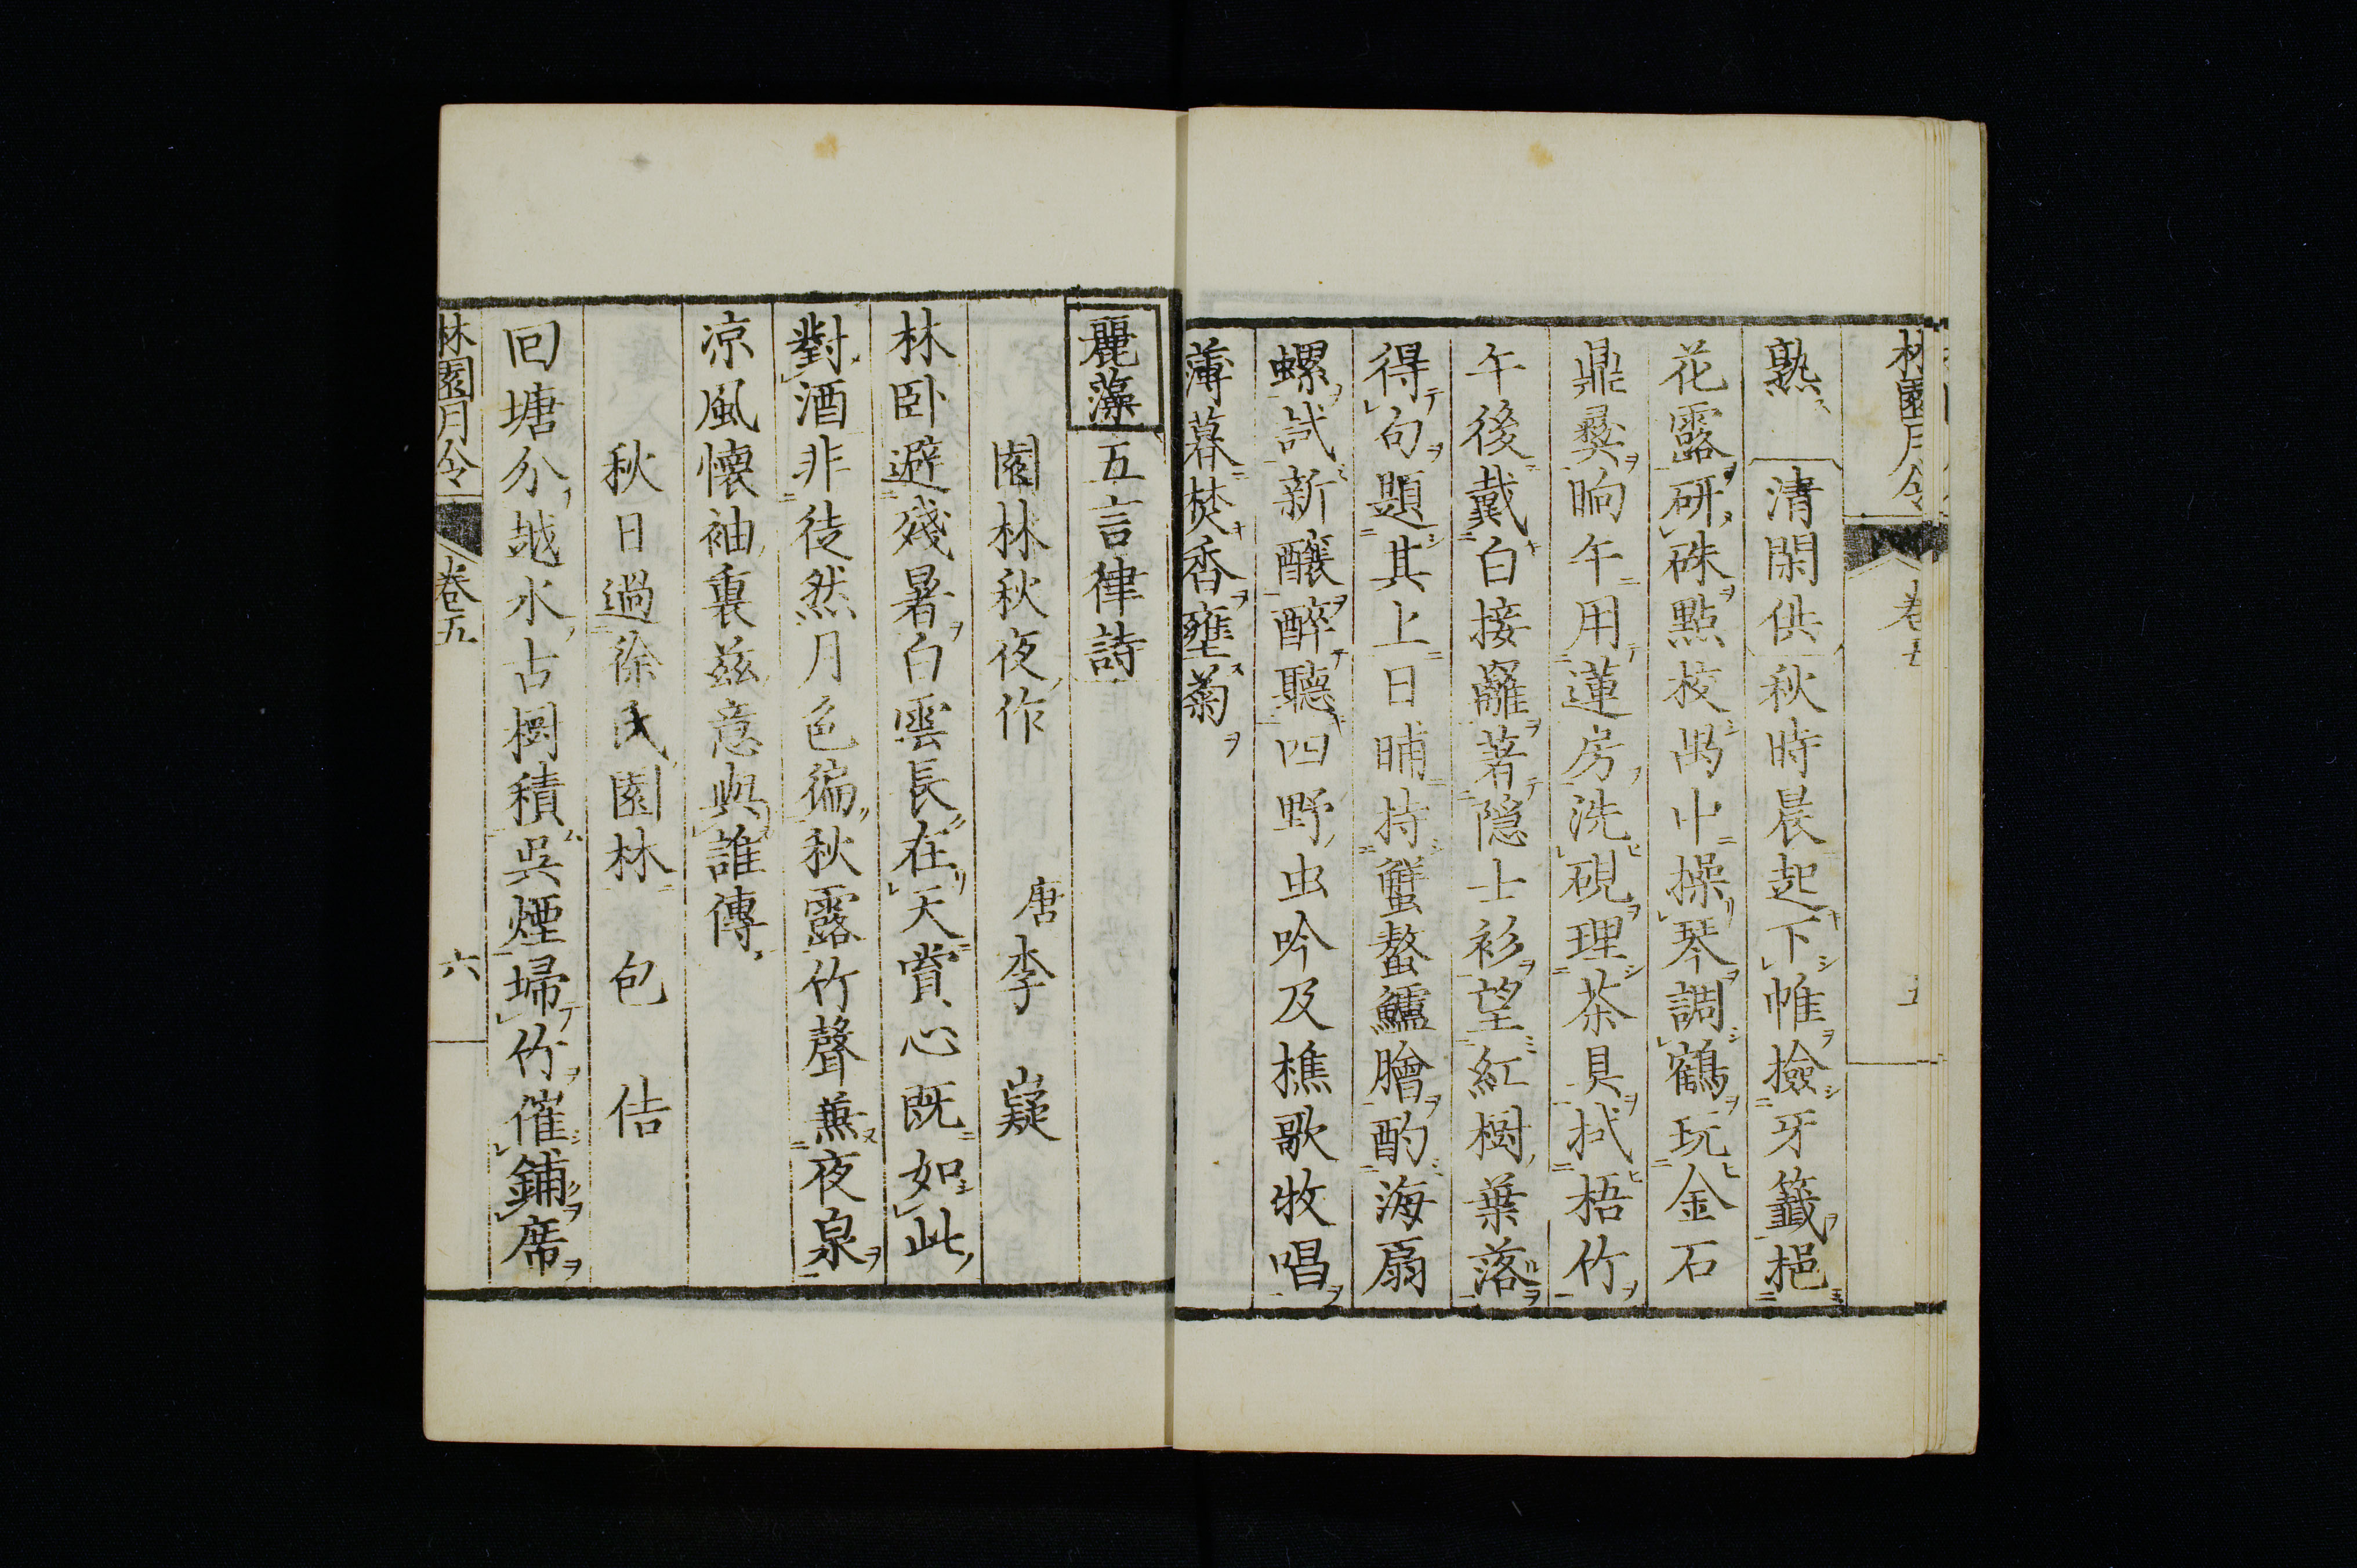 林園月令 卷五
熟 清閑供 秋時晨起下帷檢牙籤挹
花露研硃點校禺中操琴調鶴玩金石
鼎彝晌午用蓮房洗硯理茶具拭梧竹
午後戴白接䍦著隠士衫望紅樹葉落
得句題其上日晡持蟹螯鱸膾酌海扇
螺試新釀醉聽四野虫吟及樵歌牧唱
薄暮焚香壅菊
麗藻 五言律詩
園林秋夜作 唐李嶷
林卧避殘暑白雲長在天賞心既如此
對酒非徒然月色徧秋露竹聲兼夜泉
凉風懐袖裏茲意與誰傳
秋日過徐氏園林 包佶
回塘分越水古樹積吳煙掃竹催鋪席
林園月令 卷五 六